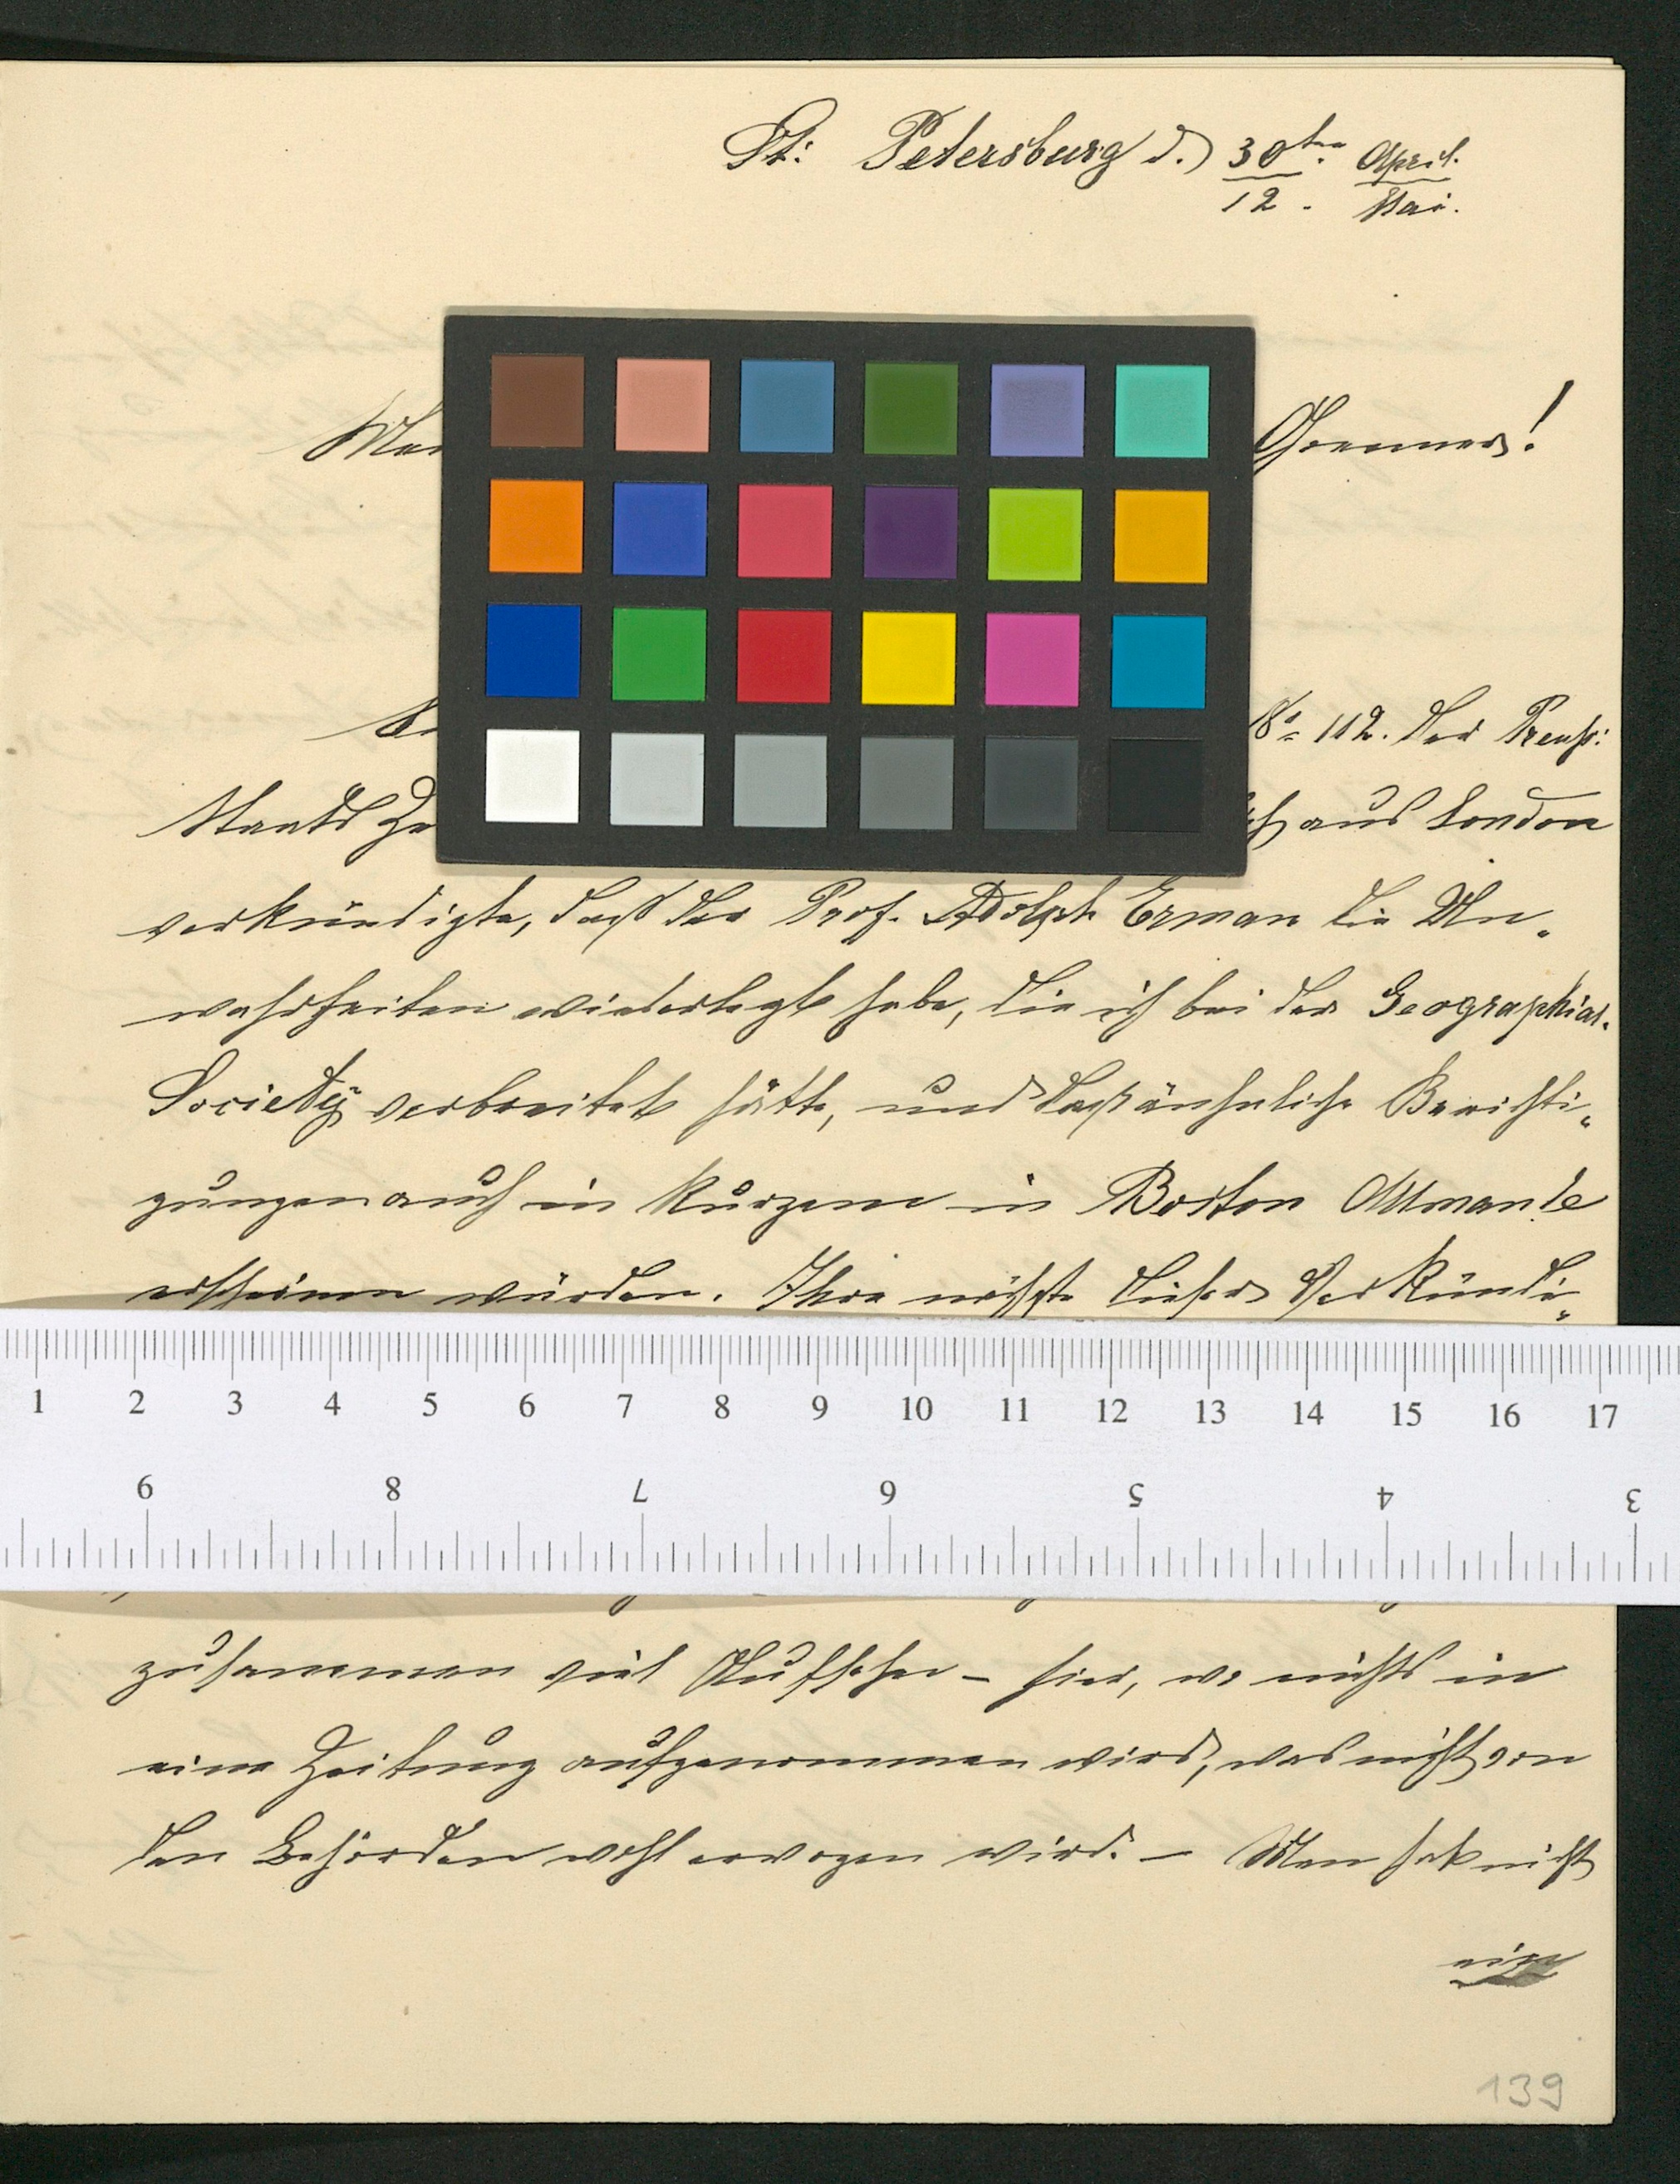 St: Petersburg d. 30ten. April.
12. Mai.
Goenner!
No 112. der Preuß:
Staats aus London
verkündigte, daß der Prof. Adolph Erman die Un„
wahrheiten wiederlegt habe, die ich bei der Geographical.
Society verbreitet hätte, und daß änhnliche Berichti„
gungen auch in Kurzem in Boston
erscheinen würden. Ihre dieser Verkündi„
1 2 3 4 5 6 7 8 9 10 11 12 13 14 15 16 17
9 8 7 6 5 4 3
zusammen viel Aufsehen – hier, wo nichts in
eine Zeitung aufgenommen wird, was nicht von
den Behörden wohl erwogen wird. – Man hat nicht
ein
139